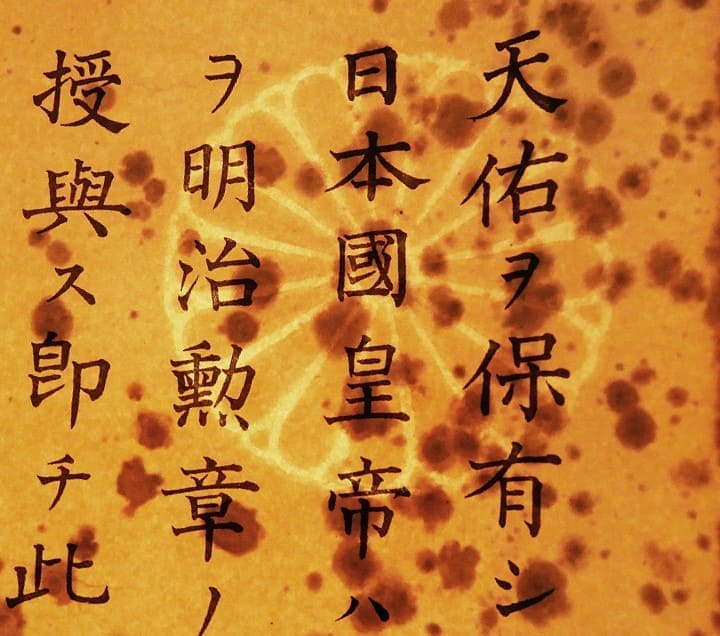 天佑ヲ保有シ
日本國皇帝ハ
ヲ明治勲章ノ
授與ス卽チ此